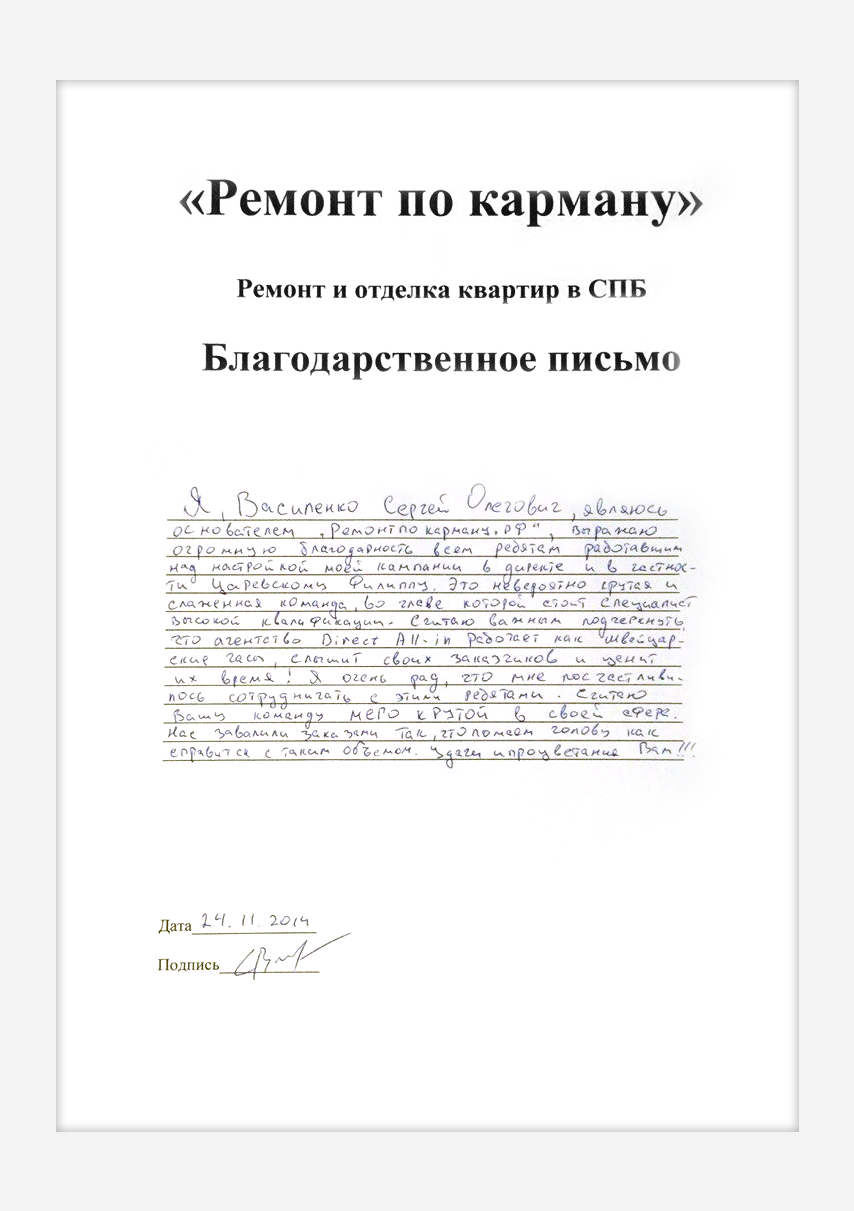 «Ремонт по карману»
Ремонт и отделка квартир в СПБ
Благодарственное письмо
Я, Василенко Сергей Олегович, являюсь
основателем „Ремонт по карману.рф“, выражаю
огромную благодарность всем ребятам работавшим
над настройкой моей кампании в директе и в частнос-
ти Царевскому Филиппу. Это невероятно крутая и
слаженная команда, во главе которой стоит специалист
высокой квалификации. Считаю важным подчеркнуть,
что агентство Direct All-in работает как "швейцар-
ские часы, слышит своих заказчиков и ценит
их время! Я очень рад, что мне посчастливи-
лось сотрудничать с этими ребятами. Считаю
Вашу команду МЕГО КРУТОЙ в своей сфере.
Нас завалили заказами так, что ломаем голову как
справится с таким объемом. Удачи и процветания Вам!!!
Дата 24.11.2014
Подпись